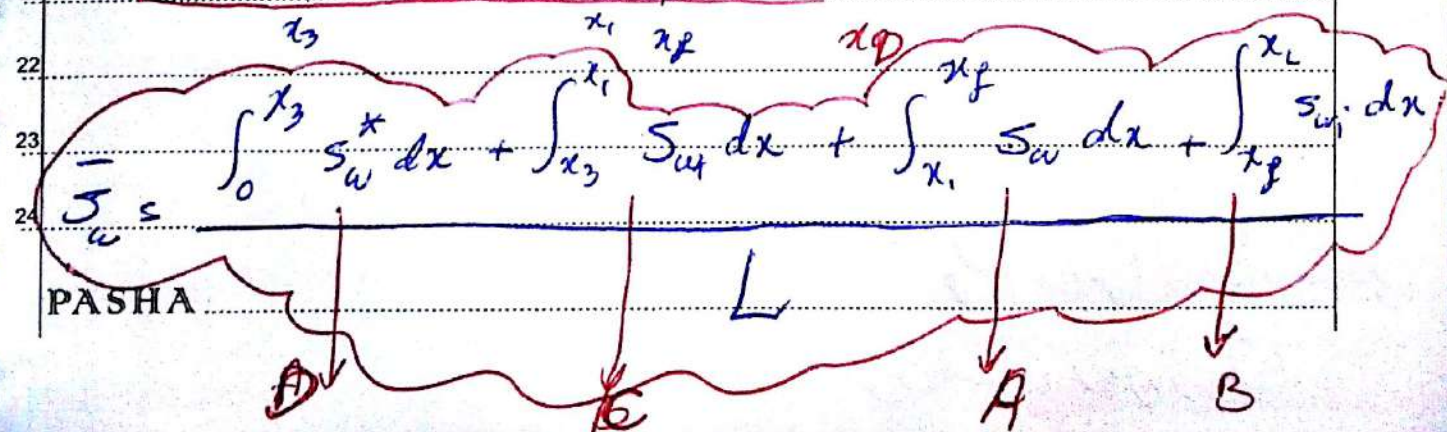 x₃ x₁ x_f x_D
22
23 S̄_w = ∫₀^{x₃} S_w* dx + ∫_{x₃}^{x₁} S_{wf} dx + ∫_{x₁}^{x_f} S_w dx + ∫_{x_f}^{x_L} S_{wi} dx
24 L
PASHA
D C A B